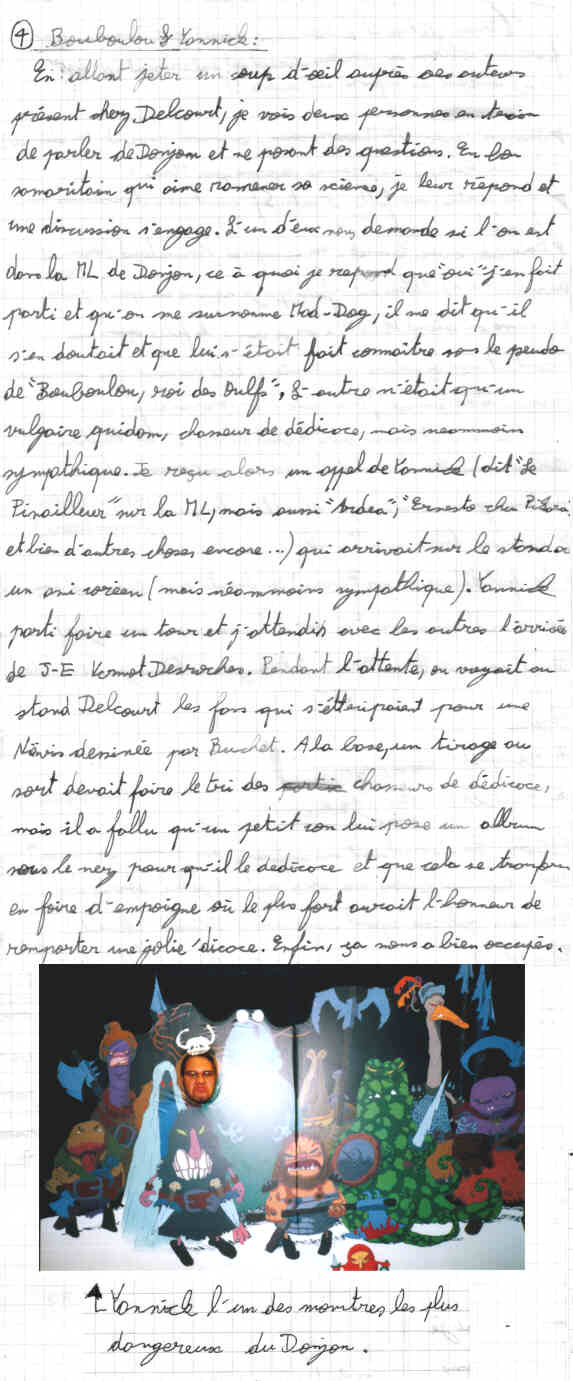 ④ Bouboulou & Yannick :
En allant jeter un coup d'œil auprès des auteurs
présent chez Delcourt, je vois deux personnes en train
de parler de Donjon et se posant des questions. En bon
samaritain qui aime ramener sa science, je leur répond et
une discussion s'engage. L'un d'eux nous demande si l'on est
dans la ML de Donjon, ce à quoi je répond que "oui" j'en fait
parti et qu'on me surnomme Mad-Dog, il me dit qu'il
s'en doutait et que lui s'était fait connaître sous le pseudo
de "Bouboulou, roi des Oulfs", L'autre n'était qu'un
vulgaire quidam, chasseur de dédicace, mais néammoins
sympathique. Je reçu alors un appel de Yannick (dit "Le
Pinailleur" sur la ML, mais aussi "Ardea", "Ernesto
et bien d'autres choses encore...) qui arrivait sur le stand
un ami coréen (mais néammoins sympathique). Yannick
parti faire un tour et j'attendis avec les autres l'arrivée
de J-E Vermot Desroches. Pendant l'attente, on voyait au
stand Delcourt les fans qui s'étteripaient pour une
Nävis dessinée par Buchet. A la base, un tirage au
sort devait faire le tri des chasseurs de dédicace,
mais il a fallu qu'un petit con lui pose un album
sous le nez pour qu'il le dédicace et que cela se transforme
en foire d'empoigne où le plus fort aurait l'honneur de
remporter une jolie 'dicace. Enfin, ça nous a bien occupés.
Yannick l'un des monstres les plus
dangereux du Donjon.